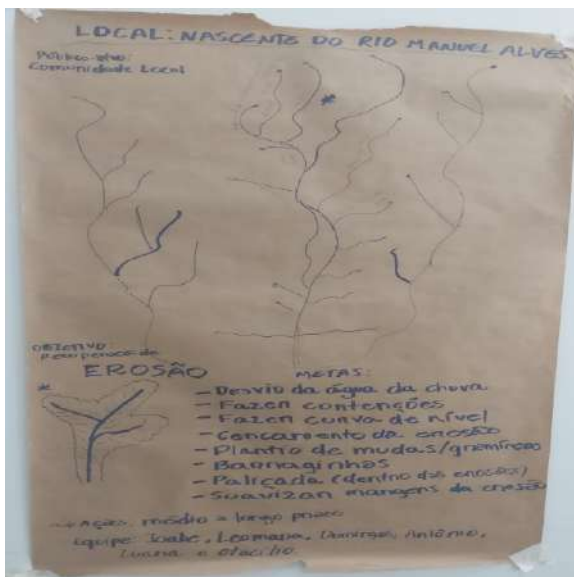 LOCAL: NASCENTE DO RIO MANUEL ALVES
Público-alvo:
Comunidade Local
*
OBJETIVO
EROSÃO
*
METAS:
- Desvio da água da chuva
- Fazer contenções
- Fazer curva de nível
- Cercamento da erosão
- Plantio de mudas/gramíneas
- Barraginhas
- Paliçada (dentro das erosões)
- Suavizar margens da erosão
Ações médio a longo prazo
Equipe: Leomara, Domingos, Antônio,
Luana e Otacílio.